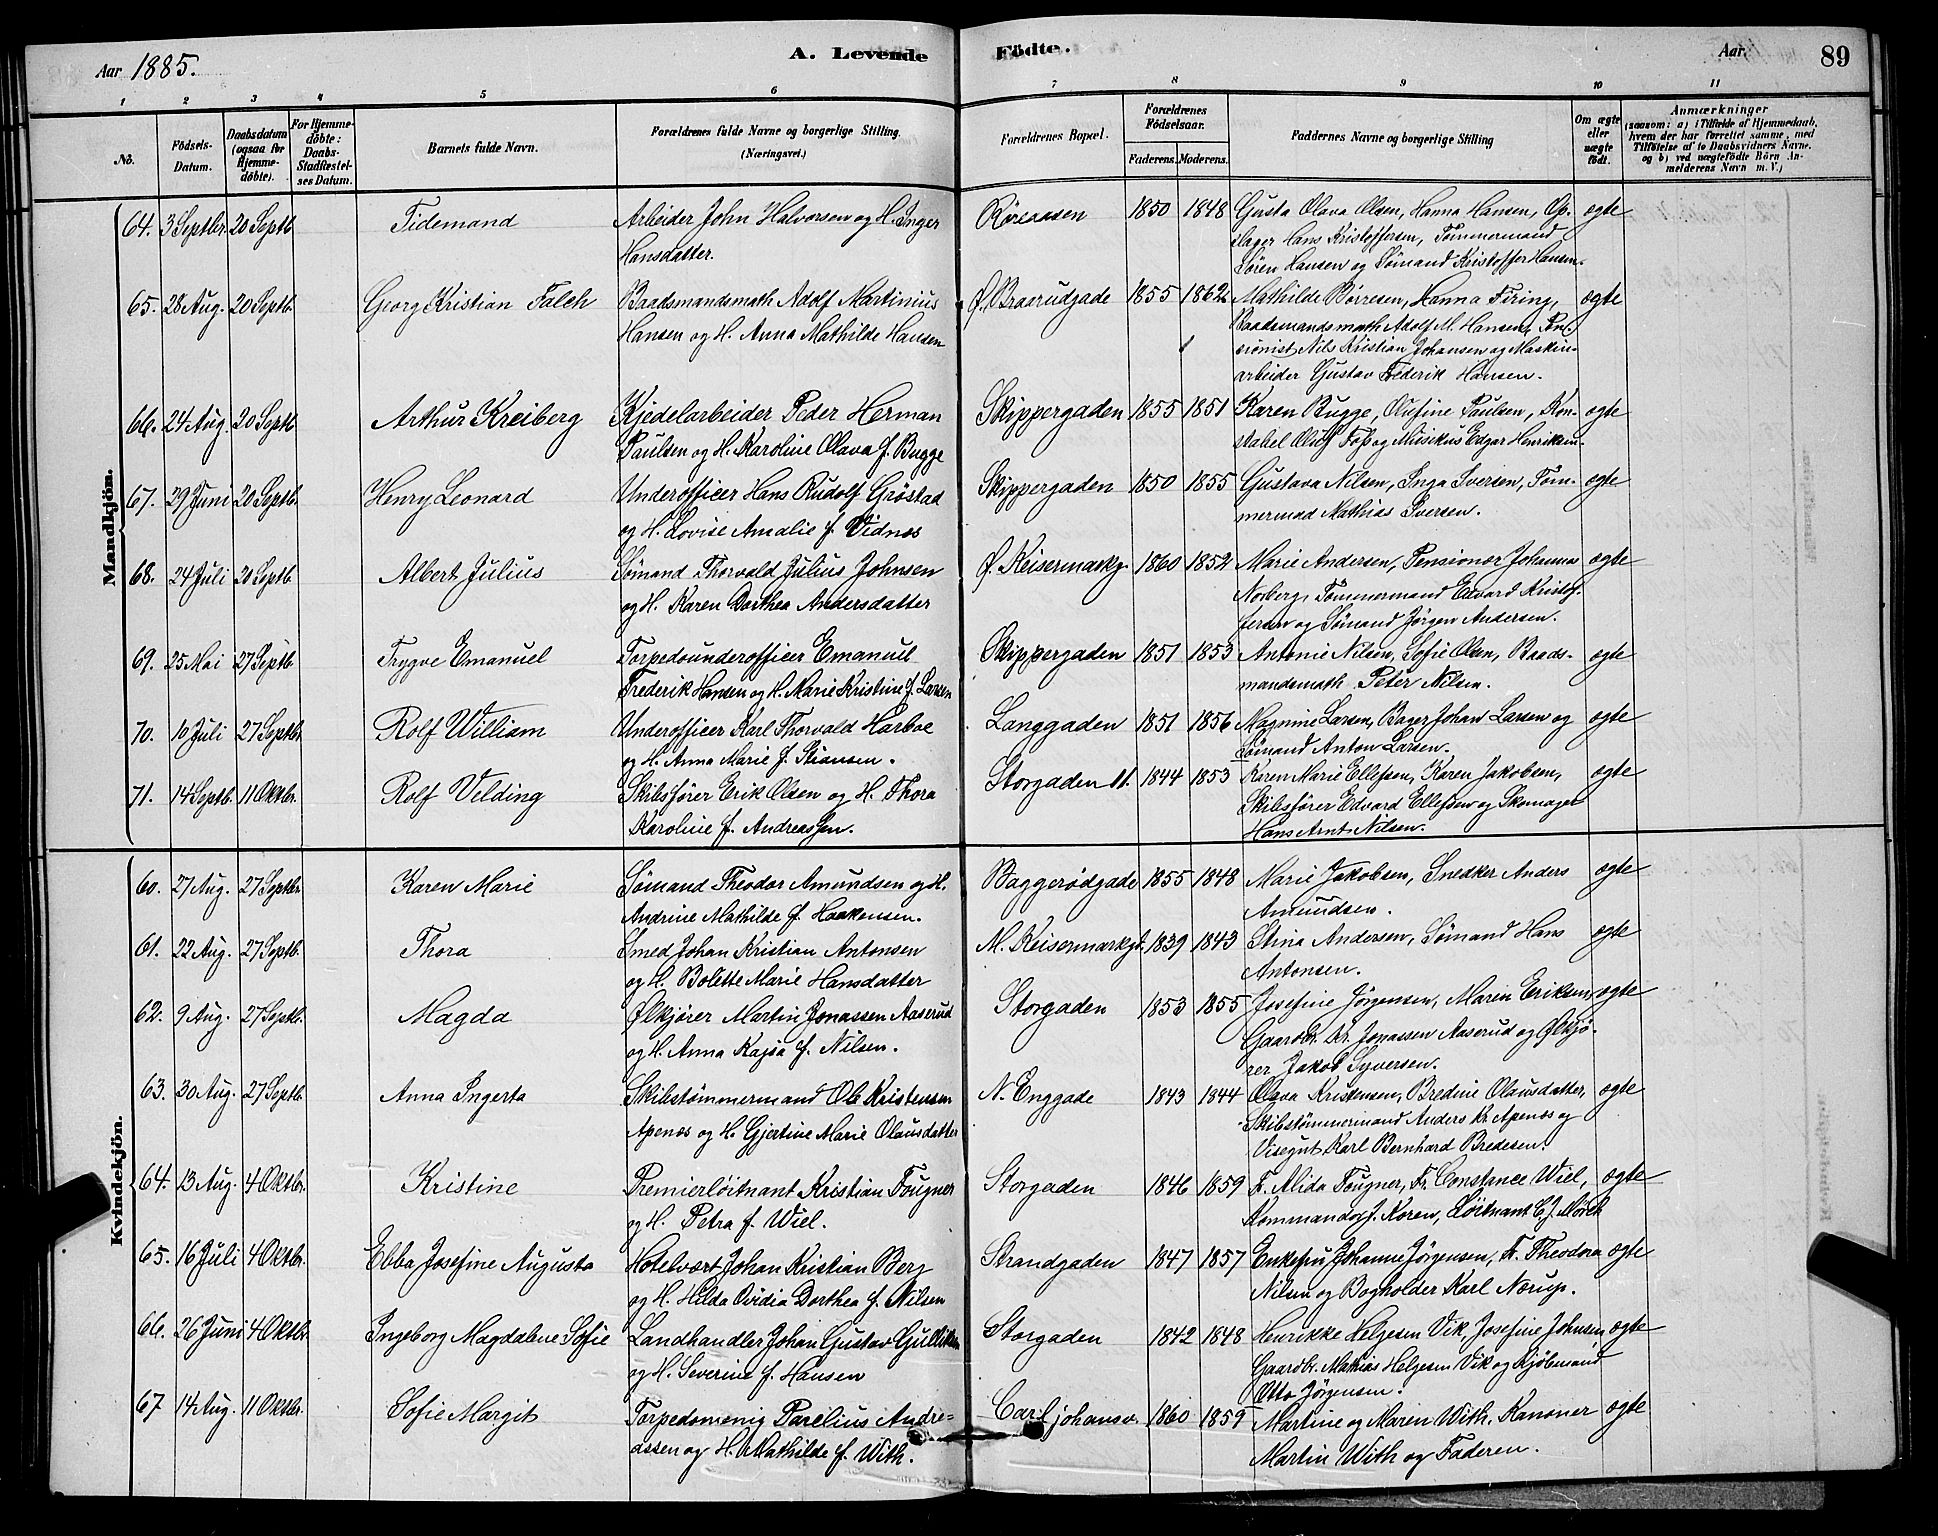 Aar 1885.
A. Levende Födte.
Aar.
89
1 2 3 4 5 6 7 8 9 10 11
No.
Födsels-Datum.
Daabsdatum (ogsaa for Hjemme-döbte).
For Hjemme-döbte: Daabs-Stadfæstel-ses Datum.
Barnets fulde Navn.
Forældrenes fulde Navne og borgerlige Stilling. (Næringsvei.)
Forældrenes Bopæl.
Forældrenes Födselsaar.
Faderens. Moderens.
Faddernes Navne og borgerlige Stilling
Om ægte eller uægte født.
Anmærkninger
(saasom: a) i Tilfælde af Hjemmedaab,
hvem der har forrettet samme, med
Tilföielse af to Daabsvidners Navne.
og b) ved uægtefödte Börn An-
melderens Navn m. V.)
Mandkjön.
64. 3 Septbr. 20 Septb. Tidemand Arbeider John Halvorsen og H. Inger Røreaasen 1850 1848 Gusta Olava Olsen, Hanna Hansen, Op- ægte
Hansdatter. slager Hans Kristoffersen, Tømmermand
Søren Hansen og Sømand Kristoffer Hansen.
65. 28 Aug. 20 Septb. Georg Kristian Falch Baadsmandsmath Adolf Martinius Ø. Braarudgade 1855 1862 Mathilde Børresen, Hanna Firing, ægte
Hansen og H. Anna Mathilde Hansen Baadsmandsmath Adolf M. Hansen, Pen-
sionist Nils Kristian Johansen og Maskin-
arbeider Gustav Frederik Hansen.
66. 24 Aug. 20 Septb. Arthur Kreiberg Kjedelarbeider Peder Herman Skippergaden 1855 1851 Karen Bugge, Olufine Paulsen, Kon- ægte
Paulsen og H. Karoline Olava f. Bugge stabel Oluf Foss og Musikus Edgar Henriksen.
67. 29 Juni 20 Septbr. Henry Leonard Underofficer Hans Rudolf Grøstad Skippergaden 1850 1855 Gustava Nilsen, Inga Iversen, Tøm- ægte
og H. Lovise Amalie f. Vidnes mermand Mathias Iversen.
68. 24 Juli 20 Septb. Albert Julius Sømand Thorvald Julius Johnsen Ø. Keisermarkg. 1860 1852 Marie Andersen, Pensioner Johannes ægte
og H. Karen Dorthea Andersdatter Norberg, Tømmermand Edvard Kristof-
fersen og Sømand Jørgen Andersen.
69. 25 Mai 27 Septb. Trygve Emanuel Torpedounderofficer Emanuel Skippergaden 1851 1853 Antonie Nilsen, Sofie Olsen, Baads- ægte
Frederik Hansen og H. Marie Kristine f. Larsen mandsmath Peter Nilsen.
70. 10 Juli 27 Septbr. Rolf William Underofficer Karl Thorvald Harboe Langgaden 1851 1856 Magnine Larsen, Bager Johan Larsen og ægte
og H. Anna Marie f. Stiansen. Sømand Anton Larsen.
71. 14 Septb. 11 Oktbr. Rolf Velding Skibsfører Erik Olsen og H. Thora Storgaden 11. 1844 1853 Karen Marie Ellefsen, Karen Jakobsen, ægte
Karoline f. Andreassen. Skibsfører Edvard Ellefsen og Skomager
Hans Arnt Nilsen.
Kvindekjön.
60. 27 Aug. 27 Septbr. Karen Marie Sømand Theodor Amundsen og H. Baggerødgade 1855 1848 Marie Jakobsen, Snedker Anders ægte
Andrine Mathilde f. Haakensen. Amundsen.
61. 22 Aug. 27 Septb. Thora Smed Johan Kristian Antonsen M. Keisermarkgt. 1839 1843 Stina Andersen, Sømand Hans ægte
og H. Bolette Marie Hansdatter Antonsen.
62. 9 Aug. 27 Septb. Magda Ølkjører Martin Jonassen Aaserud Storgaden 1853 1855 Josefine Jørgensen, Maren Eriksen, ægte
og H. Anna Kajsa f. Nilsen. Gaardbr. Kr. Jonassen Aaserud og Ølkjø-
rer Jakob Syversen.
63. 30 Aug. 27 Septb. Anna Ingerta Skibstømmermand Ole Kristensen N. Enggade 1843 1844 Olava Kristensen, Bredine Olausdatter, ægte
Apenæs og H. Gjertine Marie Olausdatter Skibstømmermand Anders Kr. Apenæs og
Visegut Karl Bernhard Bredesen.
64. 13 Aug. 4 Oktbr. Kristine Premierløitnant Kristian Fougner Storgaden 1846 1859 F. Alida Fougner, Fr. Constance Wiel, ægte
og H. Petra f. Wiel. Kommandør J. Koren, Løitnant C. J. Mørch
65. 16 Juli 4 Oktbr. Ebba Josefine Augusta Hotelvært Johan Kristian Berg Strandgaden 1847 1857 Enkefru Johanne Jørgensen, Fr. Theodora ægte
og H. Hilda Ovidia Dorthea f. Nilsen Nilsen og Bogholder Karl Nærup.
66. 26 Juni 4 Oktbr. Ingeborg Magdalene Sofie Landhandler Johan Gustav Gulliksen Storgaden 1842 1848 Henrikke Helgesen Vik, Josefine Johnsen ægte
og H. Severine f. Hansen Gaardbr. Mathias Helgesen Vik og Kjøbmand
Otto Jørgensen.
67 14 Aug. 11 Oktbr. Sofie Margit Torpedomenig Parelius Andre- Carljohansv. 1860 1859 Martine og Maren With, Kanoner ægte
assen og H. Mathilde f. With. Martin With og Faderen.